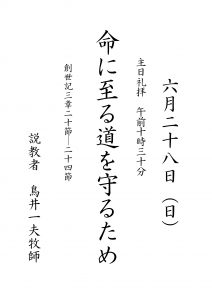 六月二十八日（日）
主日礼拝　午前十時三十分
命に至る道を守るため
創世記三章二十節―二十四節
説教者　鳥井一夫牧師